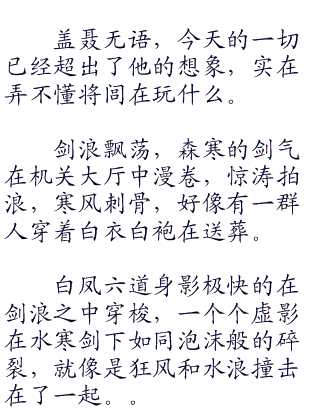 盖聂无语，今天的一切
已经超出了他的想象，实在
弄不懂将闾在玩什么。
剑浪飘荡，森寒的剑气
在机关大厅中漫卷，惊涛拍
浪，寒风刺骨，好像有一群
人穿着白衣白袍在送葬。
白凤六道身影极快的在
剑浪之中穿梭，一个个虚影
在水寒剑下如同泡沫般的碎
裂，就像是狂风和水浪撞击
在了一起。。